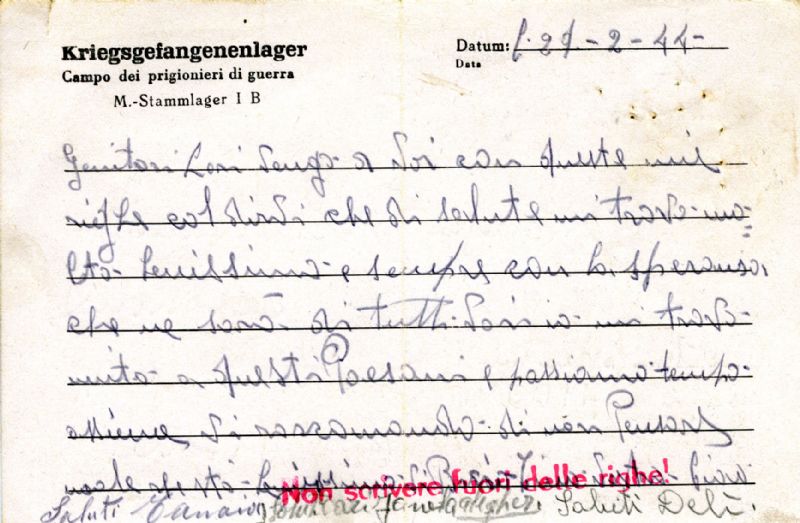 Kriegsgefangenenlager
Campo dei prigionieri di guerra
M.-Stammlager I B
Datum: 21-2-44-
Data
Genitori Cari vengo a voi con queste mie
righe col dirvi che di salute mi trovo mo=
lto benissimo e sempre con la speranza
che ne sarà di tutti voi io mi trovo
unito a questi Paesani e passiamo tempo
assieme vi raccomando di non Pensare
male sto benissimo vi Bacio
Non scrivere fuori delle righe!
Saluti Saluti